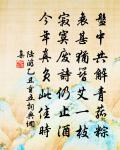 盤中共解青菰粽
衰甚猶簪艾一枝
寂寞廢詩仍止酒
今年真負此佳時
陸游乙丑重五詞典網
集